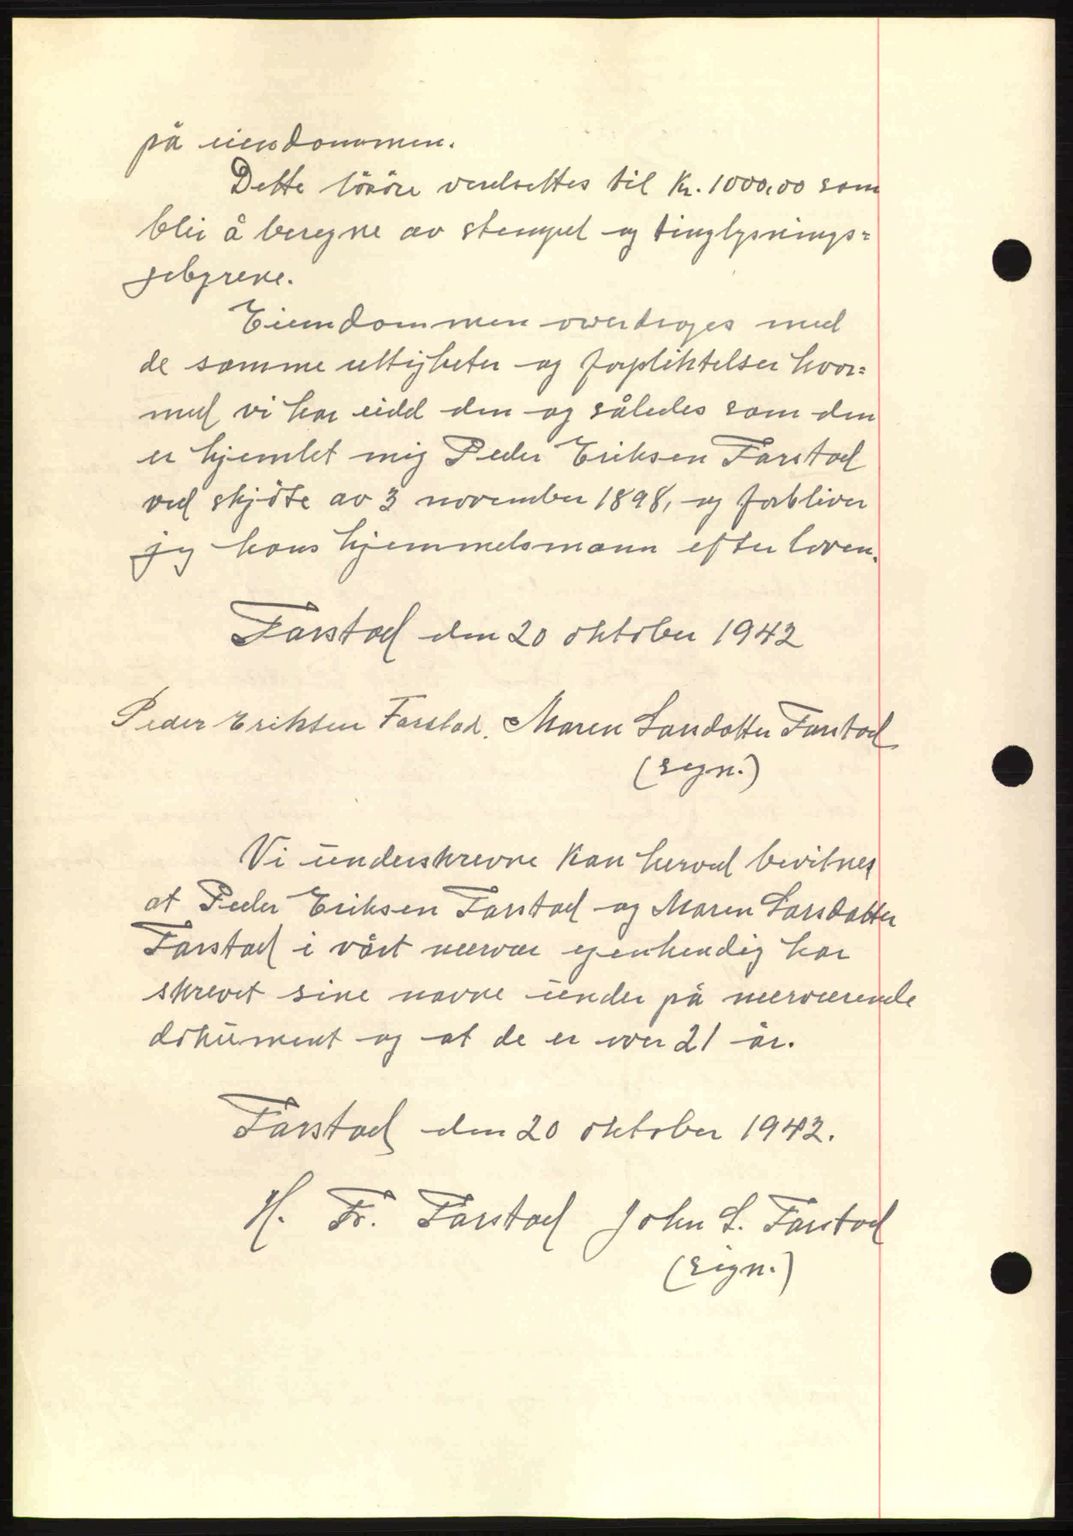 på eiendommen.
Dette løsøre verdsettes til Kr. 1000,00 som
blir å beregne av stempel og tinglysnings=
gebyrene.
Eiendommen overdrages med
de samme rettigheter og forpliktelser hvor=
med vi har eidd den og således som den
er hjemlet mig Peder Eriksen Farstad
ved skjøte av 3 november 1898, og forbliver
jeg hans hjemmelsmann efter loven.
Farstad den 20 oktober 1942
Peder Eriksen Farstad. Maren Larsdatter Farstad
(sign.)
Vi underskrevne kan herved bevitnes
at Peder Eriksen Farstad og Maren Larsdatter
Farstad i vårt nærvær egenhendig har
skrevet sine navne under på nærværende
dokument og at de er over 21 år.
Farstad den 20 oktober 1942.
H. Fr. Farstad John L. Farstad
(sign.)